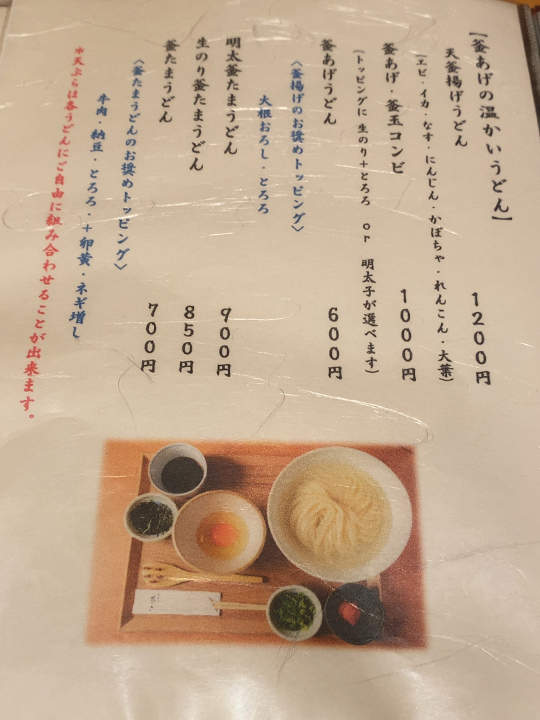 【釜あげの温かいうどん】
天釜揚げうどん 1200円
(エビ・イカ・なす・にんじん・かぼちゃ・れんこん・大葉)
釜あげ・釜玉コンビ 1000円
(トッピングに 生のり+とろろ or 明太子が選べます)
釜あげうどん 600円
〈釜揚げのお奨めトッピング〉
大根おろし・とろろ
明太釜たまうどん 900円
生のり釜たまうどん 850円
釜たまうどん 700円
〈釜たまうどんのお奨めトッピング〉
牛肉・納豆・とろろ・+卵黄・ネギ増し
*天ぷらは各うどんにご自由に組み合わせることが出来ます。